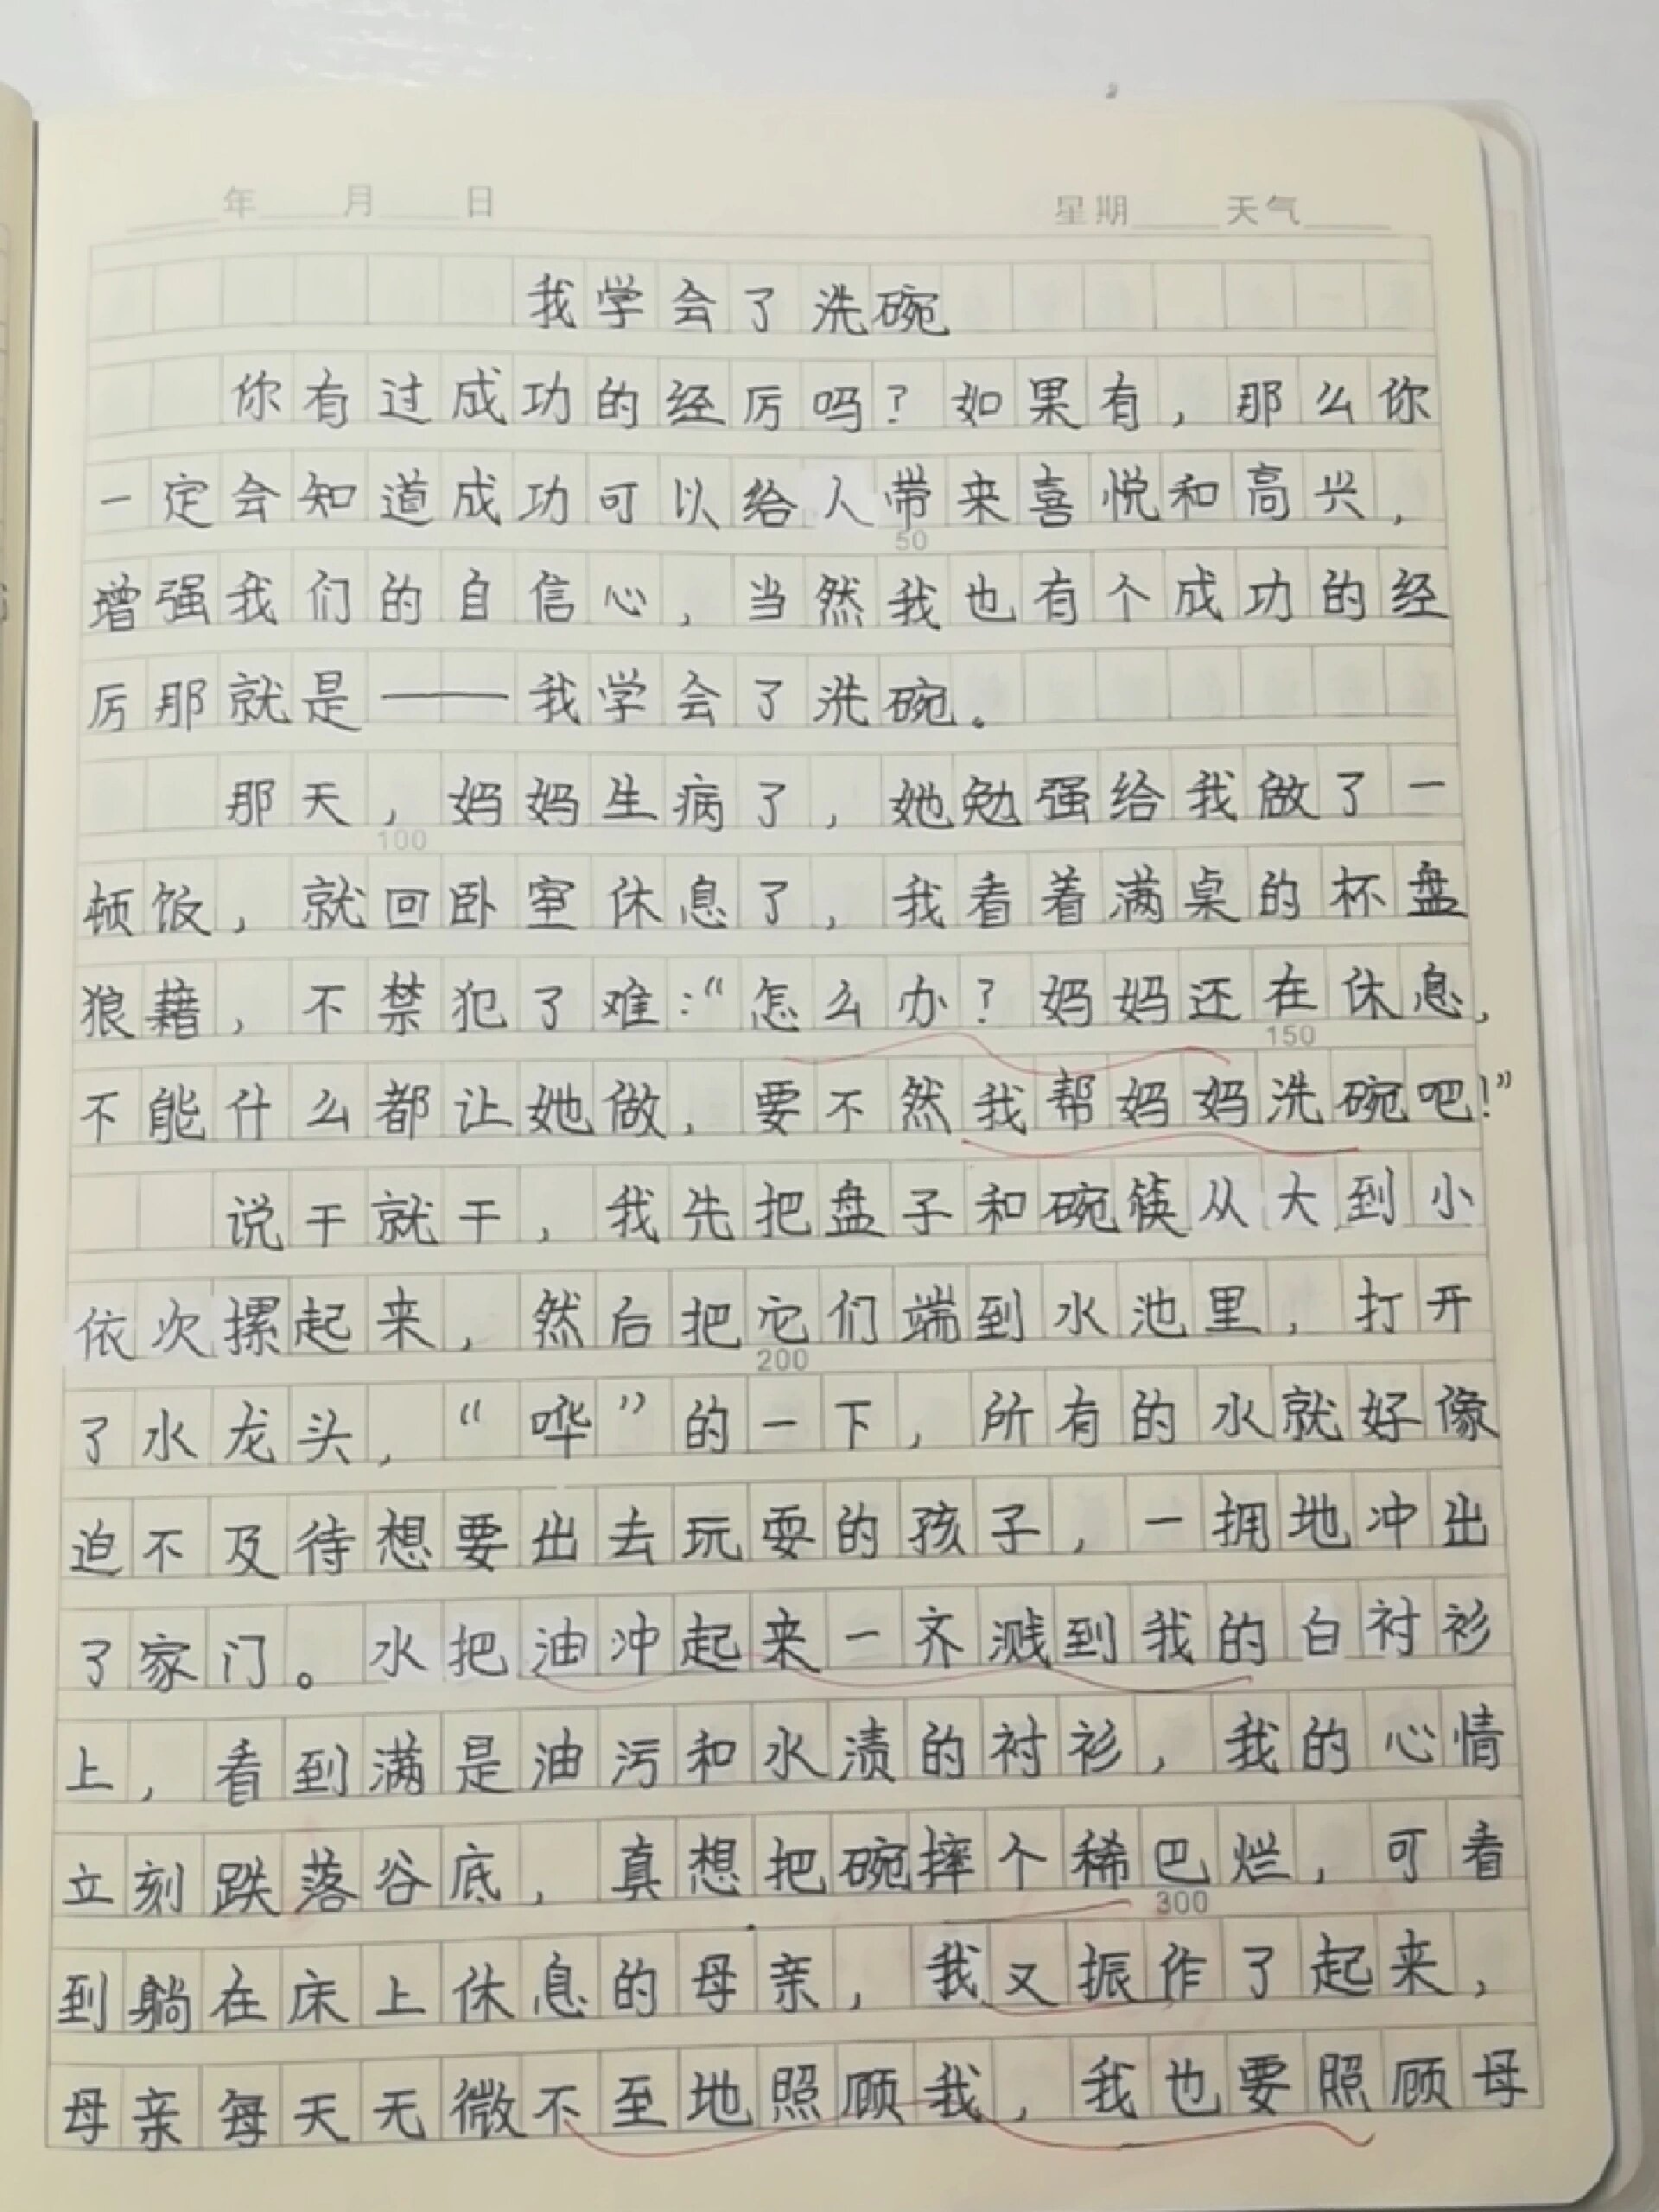 年 月 日 星期 天气
我学会了洗碗
你有过成功的经厉吗?如果有,那么你
一定会知道成功可以给人带来喜悦和高兴,
50
增强我们的自信心,当然我也有个成功的经
厉那就是——我学会了洗碗。
那天,妈妈生病了,她勉强给我做了一
100
顿饭,就回卧室休息了,我看着满桌的杯盘
狼藉,不禁犯了难:“怎么办?妈妈还在休息,
150
不能什么都让她做,要不然我帮妈妈洗碗吧!”
说干就干,我先把盘子和碗筷从大到小
依次摞起来,然后把它们端到水池里,打开
200
了水龙头,“哗”的一下,所有的水就好像
迫不及待想要出去玩耍的孩子,一拥地冲出
了家门。水把油冲起来一齐溅到我的白衬衫
上,看到满是油污和水渍的衬衫,我的心情
立刻跌落谷底,真想把碗摔个稀巴烂,可看
300
到躺在床上休息的母亲,我又振作了起来,
母亲每天无微不至地照顾我,我也要照顾母